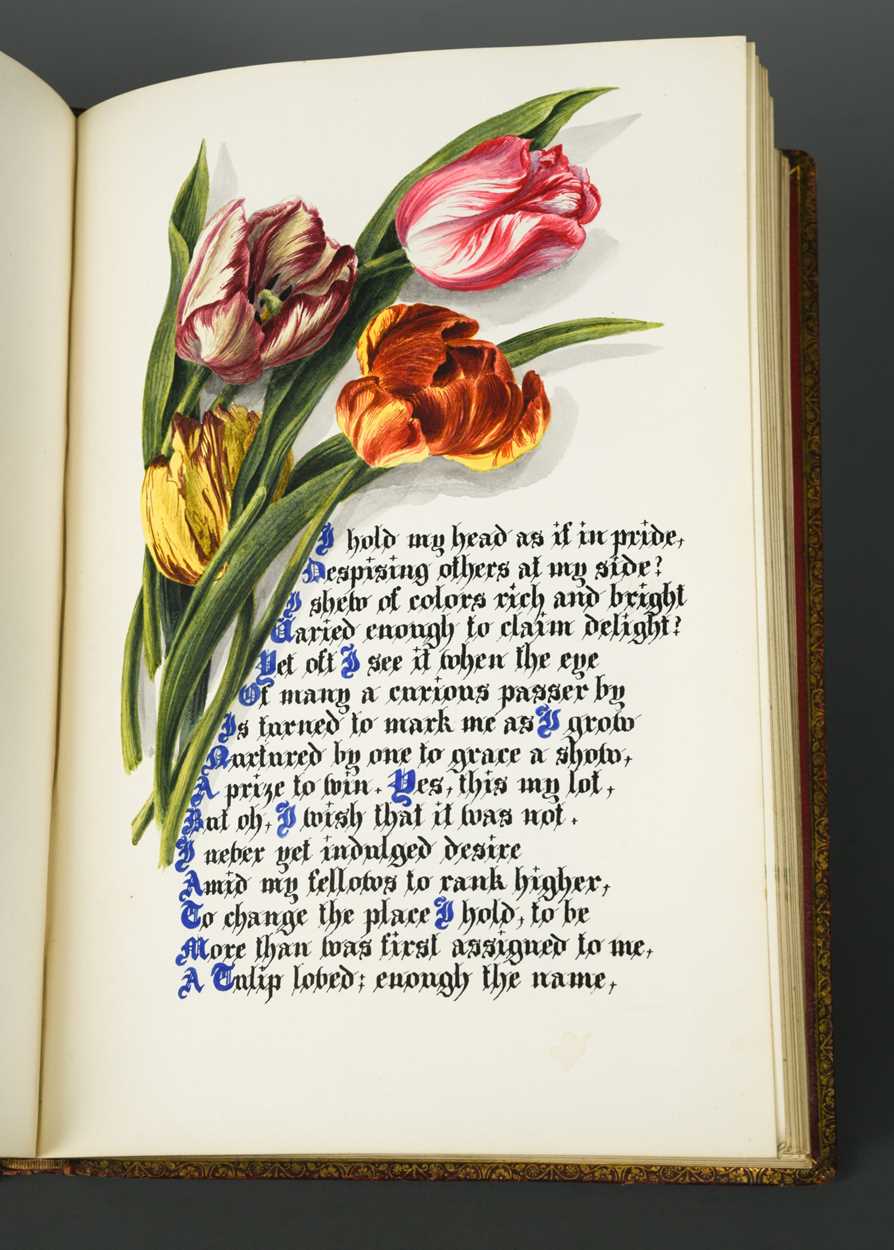 I hold my head as if in pride,
Despising others at my side?
I shew of colors rich and bright
Varied enough to claim delight?
Yet oft I see it when the eye
Of many a curious passer by
Is turned to mark me as I grow
Nurtured by one to grace a show,
A prize to win. Yes, this my lot,
But oh, I wish that it was not.
I never yet indulged desire
Amid my fellows to rank higher,
To change the place I hold, to be
More than was first assigned to me,
A Tulip loved; enough the name,